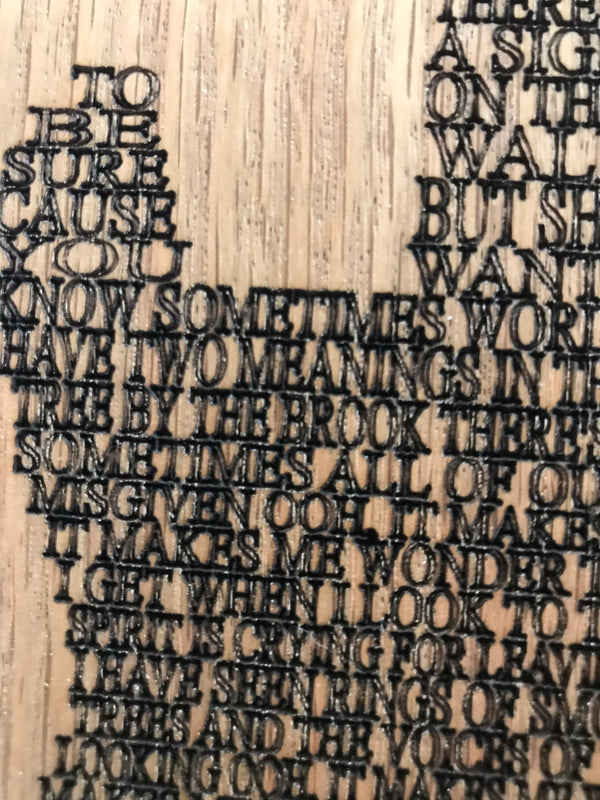 THERE
A SIG
ON TH
TO
BE
SURE
CAUSE
YOU
WAL
BUT SH
WANT
KNOW SOMETIMES WOR
HAVE TWO MEANINGS IN TH
TREE BY THE BROOK THERE'S
SOMETIMES ALL OF OU
MISGIVEN OOH, IT MAKES
IT MAKES ME WONDER T
I GET WHEN I LOOK TO T
SPIRIT IS CRYING FOR LEAVI
I HAVE SEEN RINGS OF SMO
TREES AND THE VOICES OF
LOOKING OOH IT MAKES